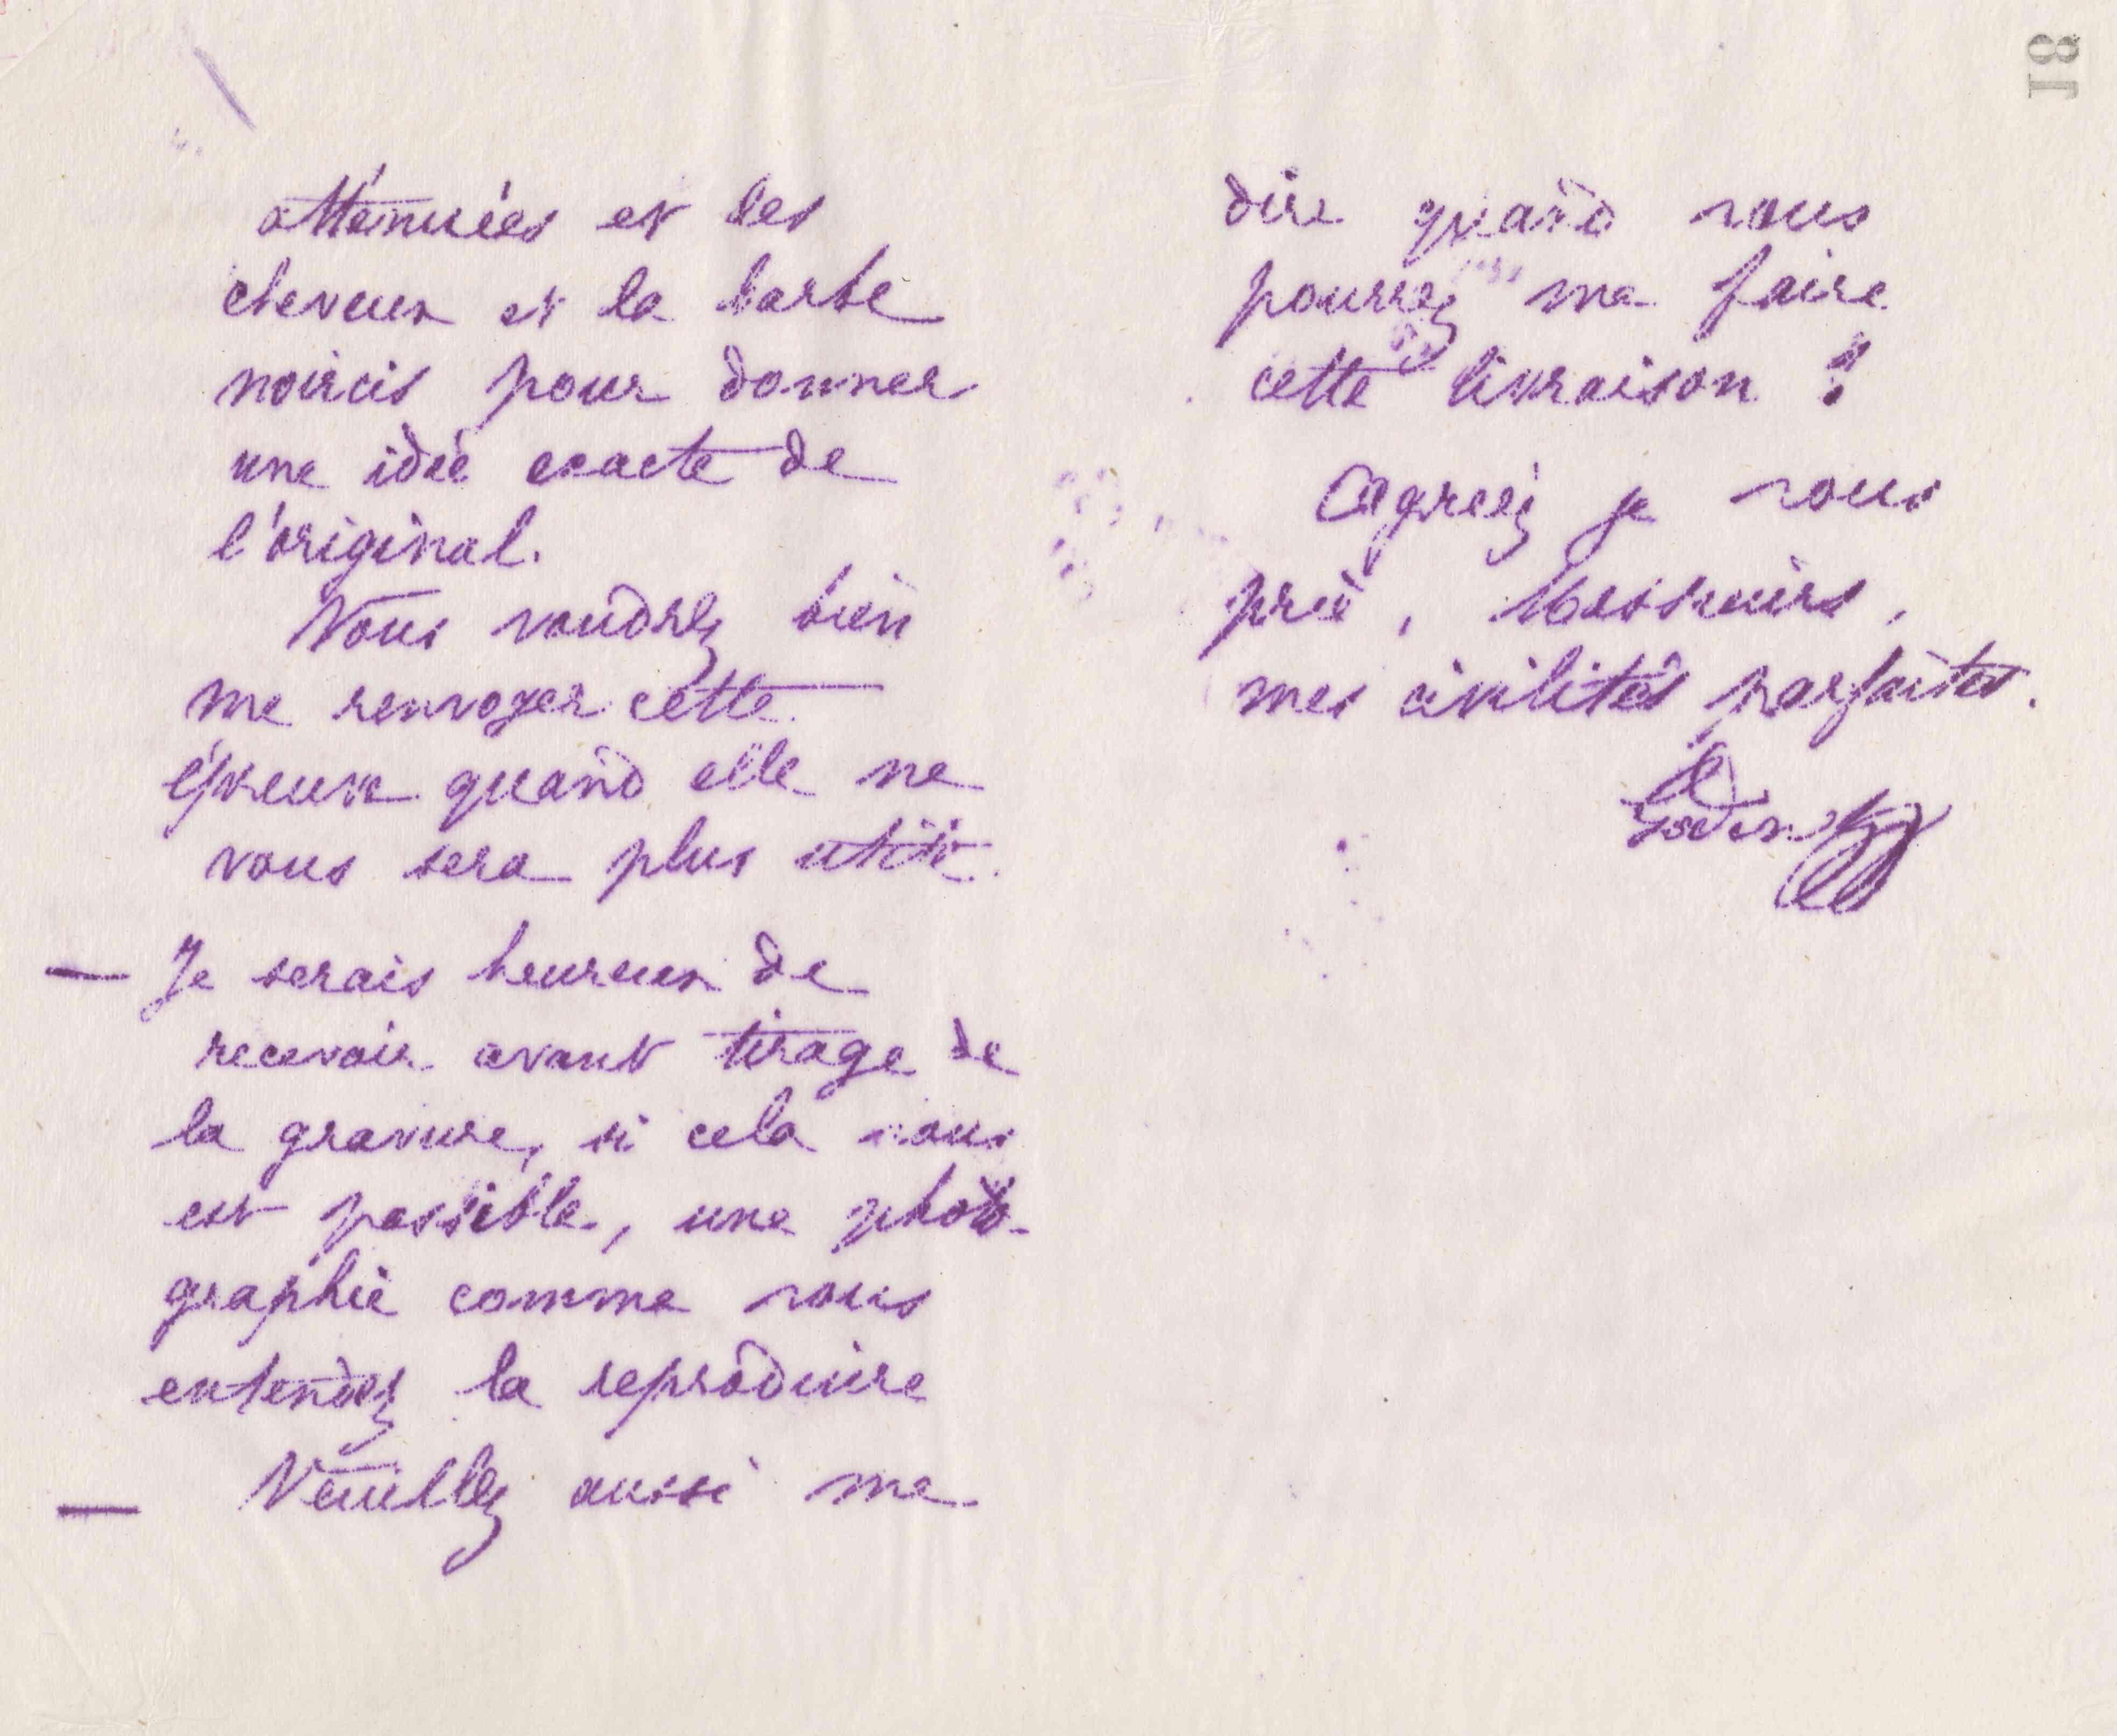 18
atténuées et les
cheveux et la barbe
noircis pour donner
une idée exacte de
l'original.
Vous voudrez bien
me renvoyer cette
épreuve quand elle ne
vous sera plus utile.
— Je serais heureux de
recevoir avant tirage de
la gravure, si cela vous
est possible, une photo-
graphie comme vous
entendez la reproduire
— Veuillez aussi me
dire quand vous
pourrez me faire
cette livraison ?
Agréez je vous
prie, Messieurs,
mes civilités parfaites.
Godin